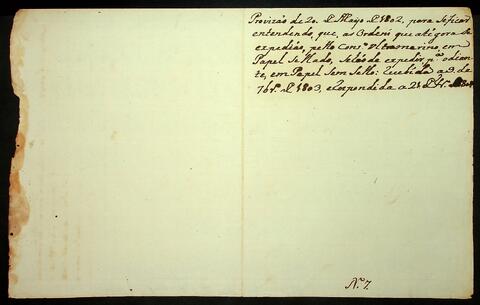 Provizão de 20 de Mayo de 1802, para se ficar
entendendo, que, as Ordens que atégora se
expedião, pello Conso Ultramarino, em
Papel Sellado, se hão de expedir, pa o dian-
te, em Papel Sem Sello: Recebida a 9 de
7bro de 1803, e Respondida a 21 de
No 7.